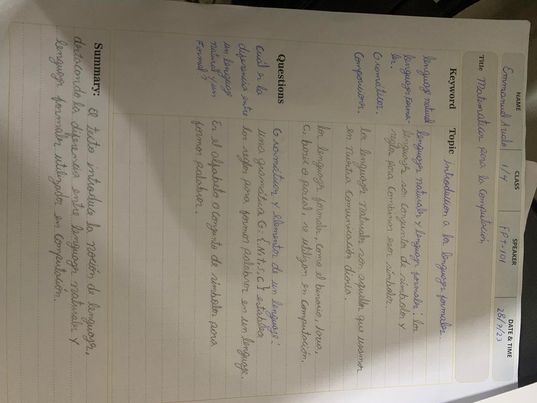 NAME
CLASS
SPEAKER
DATE & TIME
Emmanuel
1/4
FPT-101
28/9/23
Title Matematica para la Computación
Keyword
lenguaje natural
Gramática.
Computación.
Topic Introducción a los lenguajes formales
lenguajes naturales y lenguajes formales: los
lenguajes son conjuntos de símbolos y
reglas para combinar esos símbolos.
Los lenguajes naturales son aquellos que usamos
en nuestra comunicación diaria.
Los lenguajes formales, como el binario, Java,
C, utilizan en computación.
Questions
Cual es la
diferencia entre
un lenguaje
natural y un
Formal?
Gramáticas y elementos de un lenguaje:
una gramática G: {N,t,s,c} establece
las reglas para formar palabras en un lenguaje.
En el alfabeto o conjunto de símbolos para
formar palabras.
Summary: El texto introduce la noción de lenguajes,
destacando la diferencia entre lenguajes naturales y
lenguajes formales utilizados en computación.